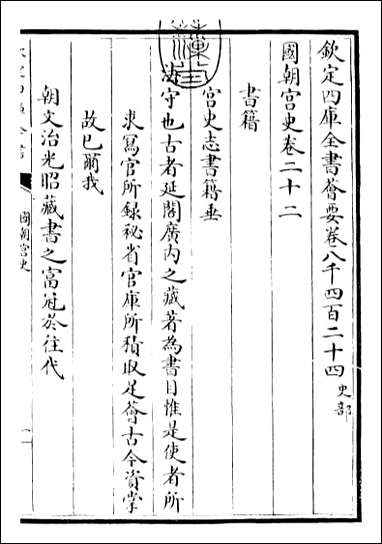 欽定四庫全書薈要卷八千四百二十四 史部
國朝宮史卷二十二
書籍
宮史志書籍垂
法守也古者延閣廣内之藏著為書目惟是使者所
求寫官所録祕省官庫所積取足薈古今資掌
故已爾我
朝文治光昭藏書之富冠於往代
國朝宮史